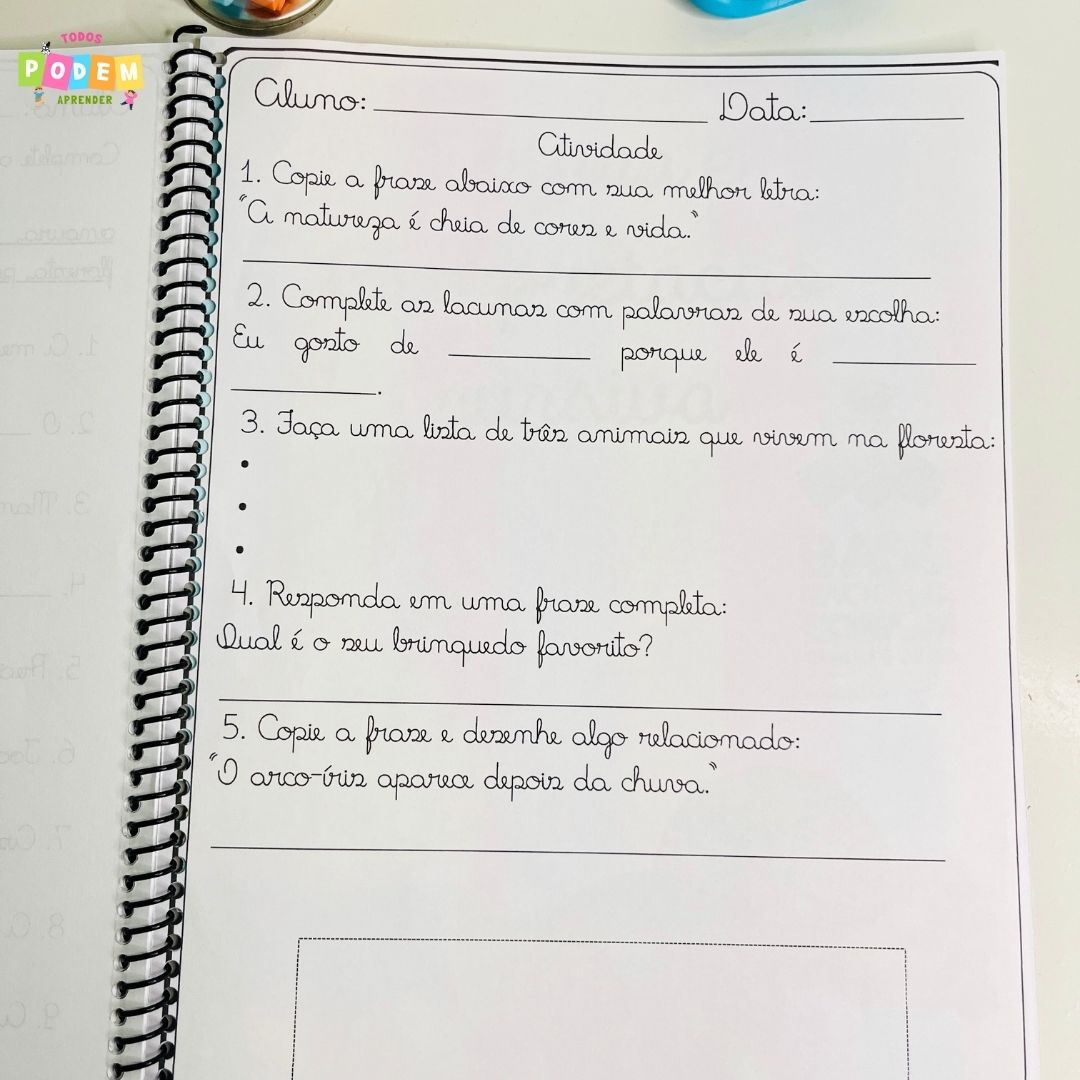 TODOS
PODEM
APRENDER
Aluno: ____________ Data: ____________
Atividade
1. Copie a frase abaixo com sua melhor letra:
"A natureza é cheia de cores e vida."
2. Complete as lacunas com palavras de sua escolha:
Eu gosto de ____________ porque ele é ____________
____________.
3. Faça uma lista de três animais que vivem na floresta:
•
•
•
4. Responda em uma frase completa:
Qual é o seu brinquedo favorito?
5. Copie a frase e desenhe algo relacionado:
"O arco-íris aparece depois da chuva."